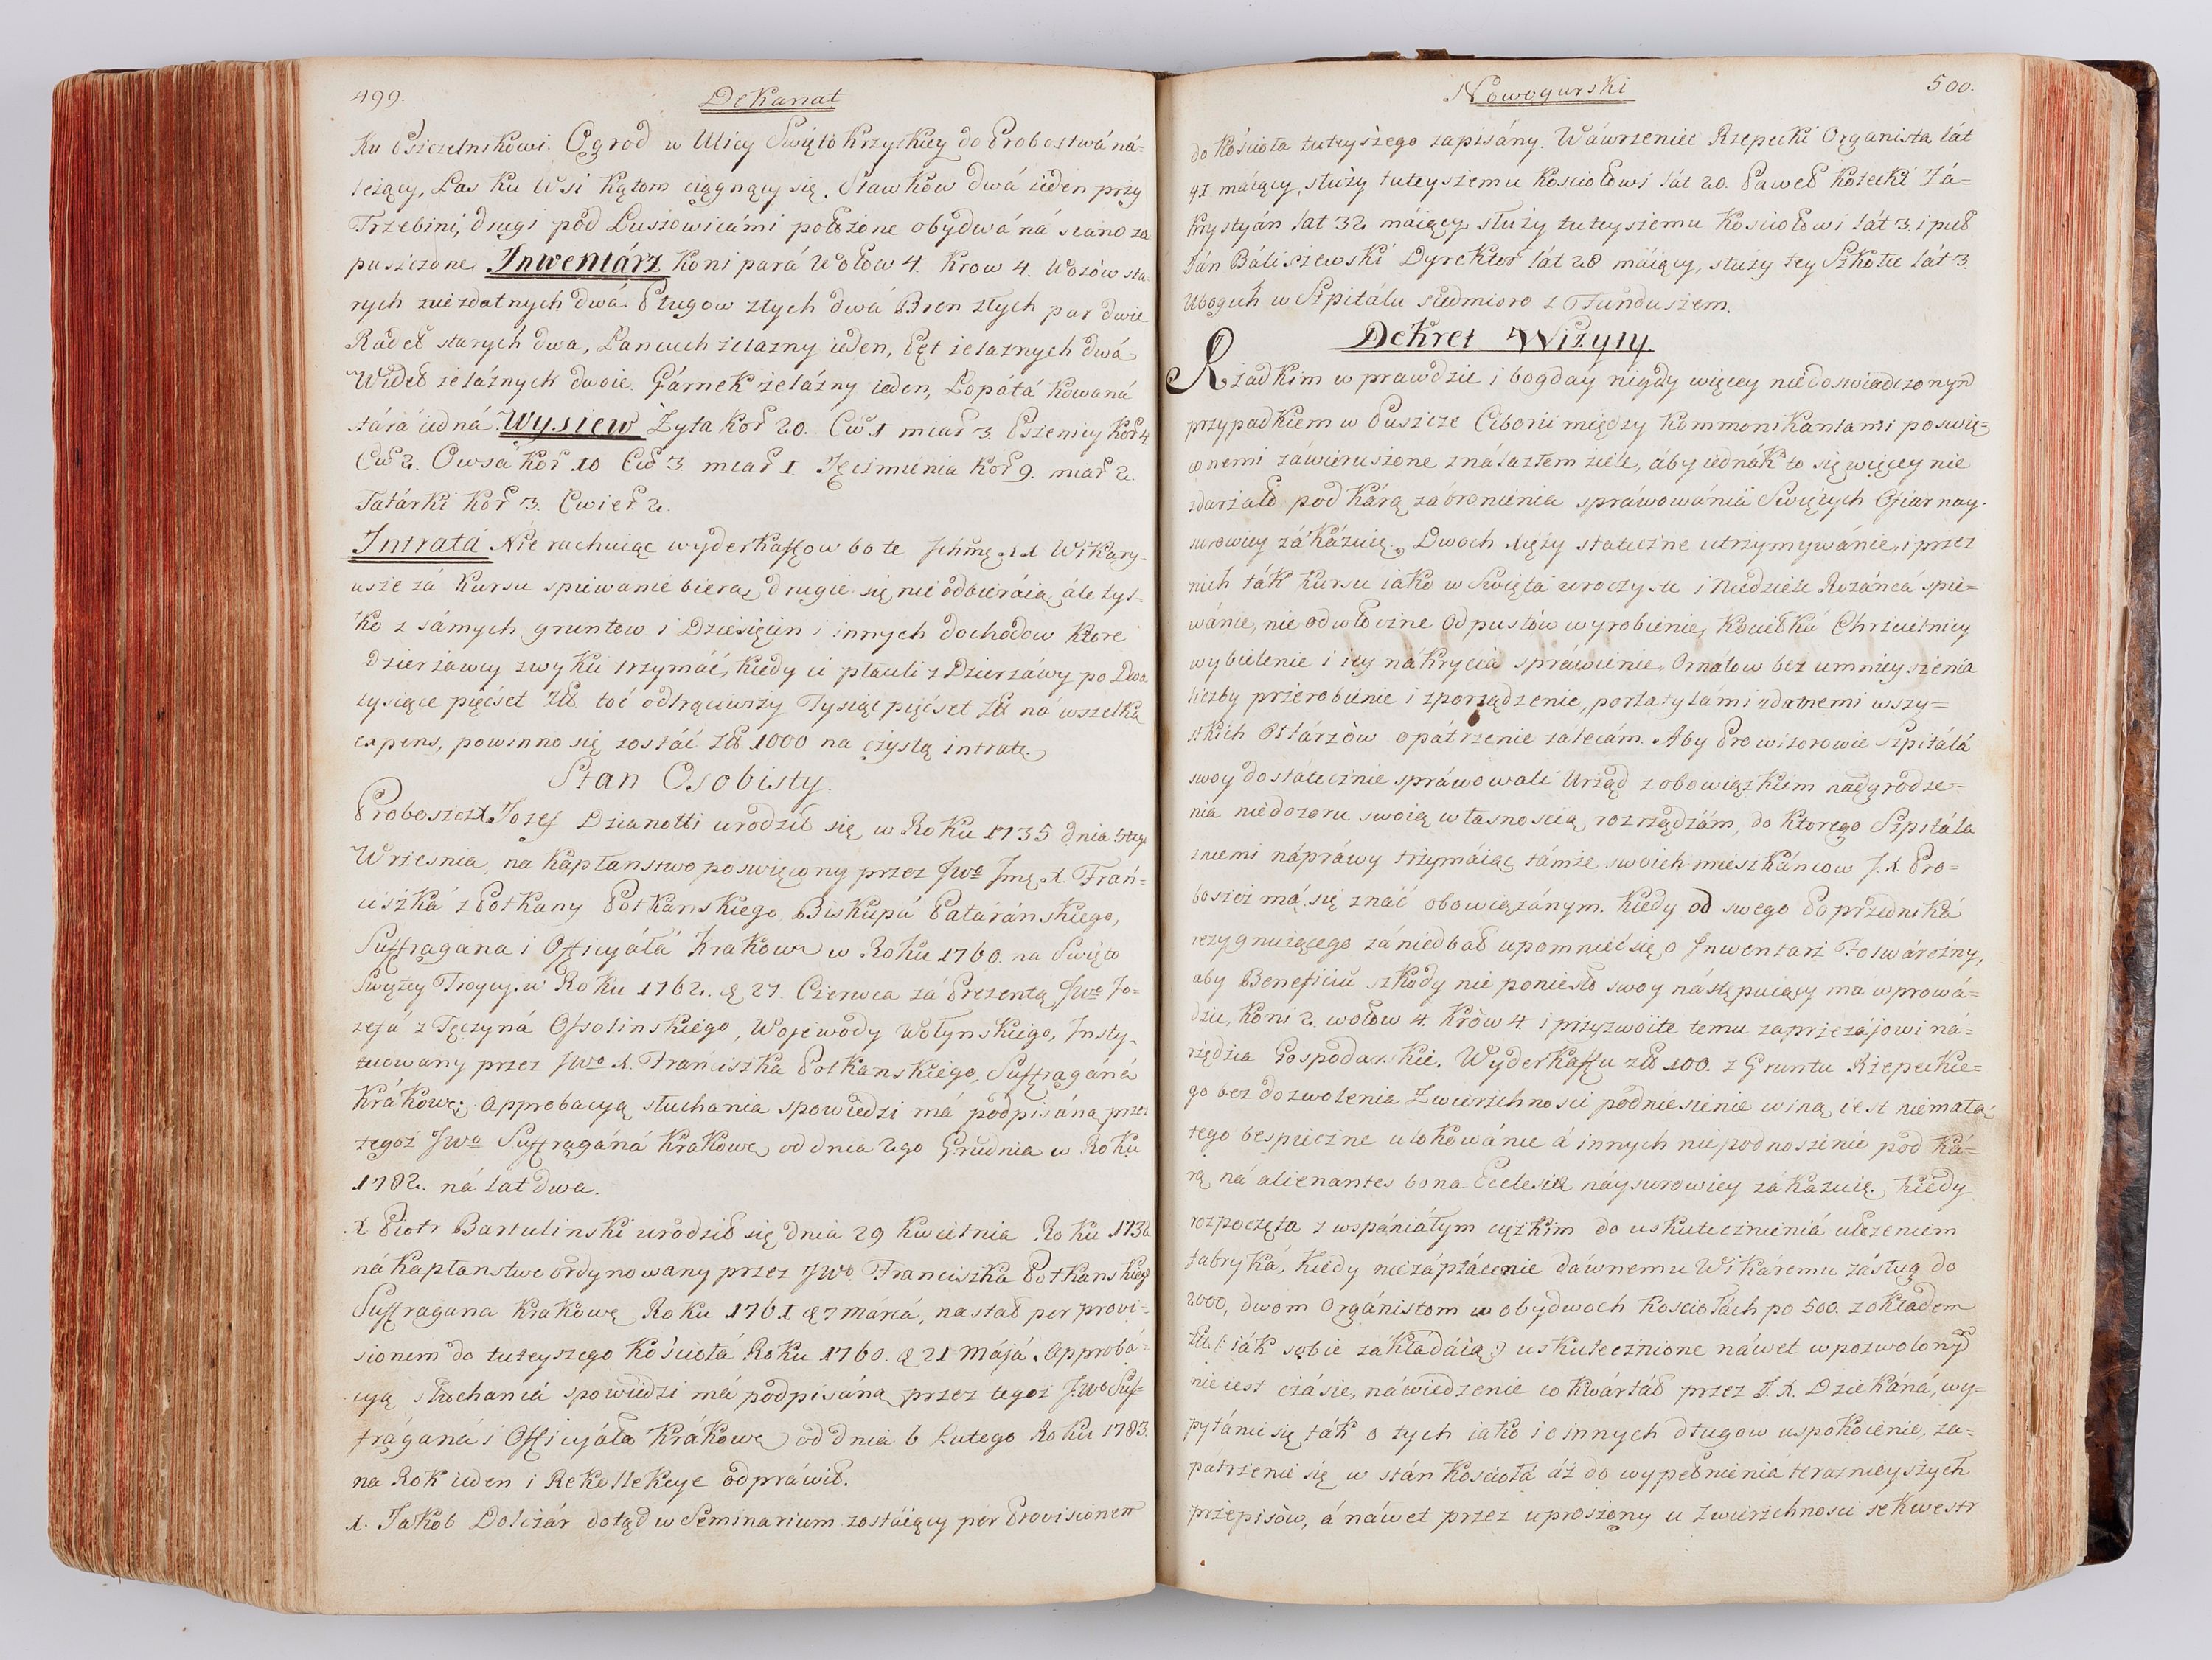 499.
Dekanat
ku Pszczelnikowi. Ogrod w Ulicy Swięto Krzyzkiey do Probostwá ná=
leżący, Las ku Wsi Kątom ciągnący się. Stawkow dwá ieden przy
Trzebini, drugi pod Luszowicámi położone obydwá ná siano za
puszczone. Inwentárz Koni pará Wołow 4. Krow 4. Wozow sta-
rych niezdatnych dwá Pługow złych dwá Bron złych par dwie
Radeł starych dwa, Lancuch żelazny ieden, Pęt żelaznych dwá
Wideł żeláznych dwoie. Gárnek żelázny ieden, Łopátá kowaná
stára iedná. Wysiew Żyta Kor 20. Cw. 1 miar 3. Pszenicy Kor 4
Cw 2. Owsa kor 10 Cw 3. miar 1. Jęczmienia kor 9. miar 2.
Tatárki Kor 3. Cwier 2.
Intrata Nie rachuiąc wyderkaffow bo te Jchmę XX Wikary-
usze zá Kursu spiewanie bierą, drugie się nie odbieráią, ále tyl-
ko z sámych gruntow i Dziesięcin i innych dochodow ktore
Dzierżawcy zwykli trzymáć, kiedy ci płacili z Dzierżáwy po Dwa
tysiące pięćset Złł toć odtrąciwszy Tysiąc pięćset Złł ná wszelką
expens, powinno się zostáć Złł 1000 na czystą intratę.
Stan Osobisty.
Proboszcz X. Jozef Dzianotti urodził się w Roku 1735 dnia
Wrzesnia, na kapłanstwo poswięcony przez Jwo Jmę X. Fran-
ciszká z Potkany Potkanskiego, Biskupá Patáránskiego,
Suffragana i Officyáłá Krakowe w Roku 1760. na Swięto
Swiętey Troycy. w Roku 1762. d 27. Czerwca zá Prezentą Jwo Jo-
zefá z Tęczyná Ossolinskiego, Wojewody Wołynskiego, Insty-
tuowany przez Jwo X. Franciszka Potkanskiego, Suffragáná
Krákowe, Approbacyą słuchania spowiedzi má podpisáną przez
tegoż Jwo Suffragáná Krakowe, od dnia 2go Grudnia w Roku
1782. ná lat dwa.
X Piotr Bartulinski urodził się dnia 29 Kwietnia Roku 1732
ná kapłanstwo ordynowany przez Jwo Franciszka Potkanskiego
Suffragana Krakowe Roku 1761 d 7 márcá, nastał per provi-
sionem do tuteyszego Kościołá Roku 1760. d 21 Májá. Approbá-
cyą słuchaniá spowiedzi má podpisáną przez tegoż J.Wo Suf-
frágáná i Officyáłá Krákowe od dnia 6 Lutego Roku 1783.
na Rok ieden i Rekollekcye odpráwił.
X. Jakob Dolczár dotąd w Seminarium zostáiący per Provisionem
Nowogurski
500.
do kościoła tuteyszego zapisány. Wáwrzeniec Rzepecki Organista lát
41 máiący, służy tuteyszemu Kosciołowi lát 20. Paweł Kozecki Zá=
krystyán lat 32 máiący służy tuteyszemu Kosciołowi lát 3. i puł
Ján Báliszewski Dyrektor lát 28 máiący, służy tey Szkole lát 3.
Ubogich w Szpitálu siedmioro z Funduszem.
Dekret Wizyty
Rzadkim w prawdzie i bogday nigdy więcey niedoswiadczonym
przypadkiem w Puszcze Ciborii między Kommonikantami poswię=
conemi záwieruszoneználazłem ziele, áby iednák to się więcey nie
zdarzáło pod kárą zábronienia spráwowániá Swiętych Ofiar nay-
surowiey zákázuię. Dwoch xięży stateczne utrzymywánie, i przez
nich ták kursu iáko w Swięta uroczyste i Niedziele Rozáncá spie=
wánie, nie odwłoczne Odpustow wyrobienie, kociełká Chrzcielnicy
wybielenie i iey nákrycia spráwienie, Ornátow bez umnieyszenia
liczby przerobienie i zporządzenie, portatylámi zdatnemi wszy=
stkich Ołtárzòw opátrzenie zalecám. Aby Prowizorowie Szpitálá
swoy dostátecznie spráwowali Urząd z obowiązkiem nadgrodze=
nia niedozoru swoią własnoscią rozrządzám, do ktorego Szpitála
zniemi nápráwy trzymáiąc támże swoich mieszkáncow J. X. Pro=
boszcz má się znáć obowiązánym. Kiedy od swego Poprzedniká
rezygnuiącego zániedbał upomnieć się o Jnwentarz Folwárczny,
aby Beneficiū szkody nie poniosło swoy nástępuiący ma wprowá=
dzić, Koni 2. wołow 4. Kròw 4. i przyzwoite temu zaprzężajowi ná=
rzędzia Gospodarskie. Wyderkaffu złł 100. z Gruntu Rzepeckie=
go bez dozwolenia Zwierzchnosci podniesienie winą iest niemałą,
tego bespieczne ulokowánie á innych niepodnoszenie pod ká=
rą ná alienantes bona Ecclesiæ náysurowiey zákazuię. Kiedy
rozpoczęta z wspániáłym ciężkim do uskutecznieniá ułożeniem
fabryká, Kiedy niezápłácenie dáwnemu Wikáremu zásług do
2000, dwom Orgánistom w obydwoch Kosciołách po 500. zokładem
złł (: iák sobie zakładáią :) uskutecznione náwet w pozwolony
nie iest czásie, náwiedzenie co kwártáł przez J. X. Dziekáná, wy=
pytánie się ták o tych iáko i o innych długow uspokoienie, za=
pátrzenie się w stán Koscioła áż do wypełnieniá teraznieyszych
przepisòw, á náwet przez uproszony u Zwierzchnosci sekwestr